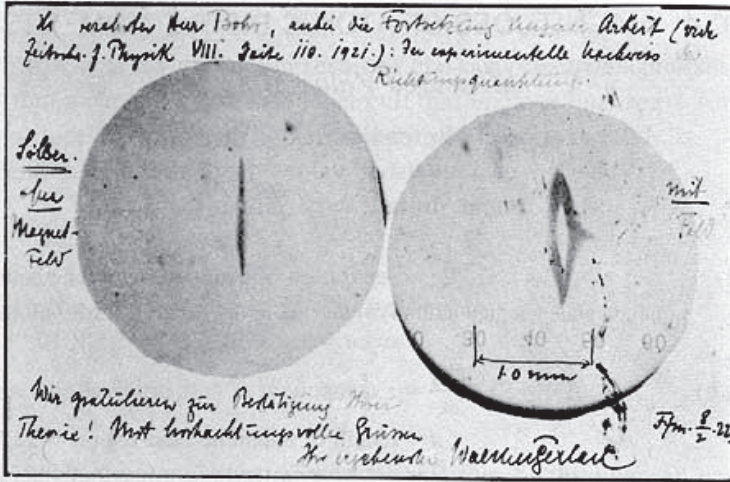 verehrter Herr Bohr, anbei die Fortsetzung unserer Arbeit (vide
Zeitschr. f. Physik VIII. Seite 110. 1921.): Der experimentelle Nachweis
Richtungsquantelung.
Silber.
ohne
Magnet-
Feld
mit
Feld
20 30 40 50 60
1.0 mm
Wir gratulieren zur Bestätigung Ihrer
Theorie! Mit hochachtungsvollen Grüssen
Ihr ergebenster Walther Gerlach
Ffm. 8/2. 22.